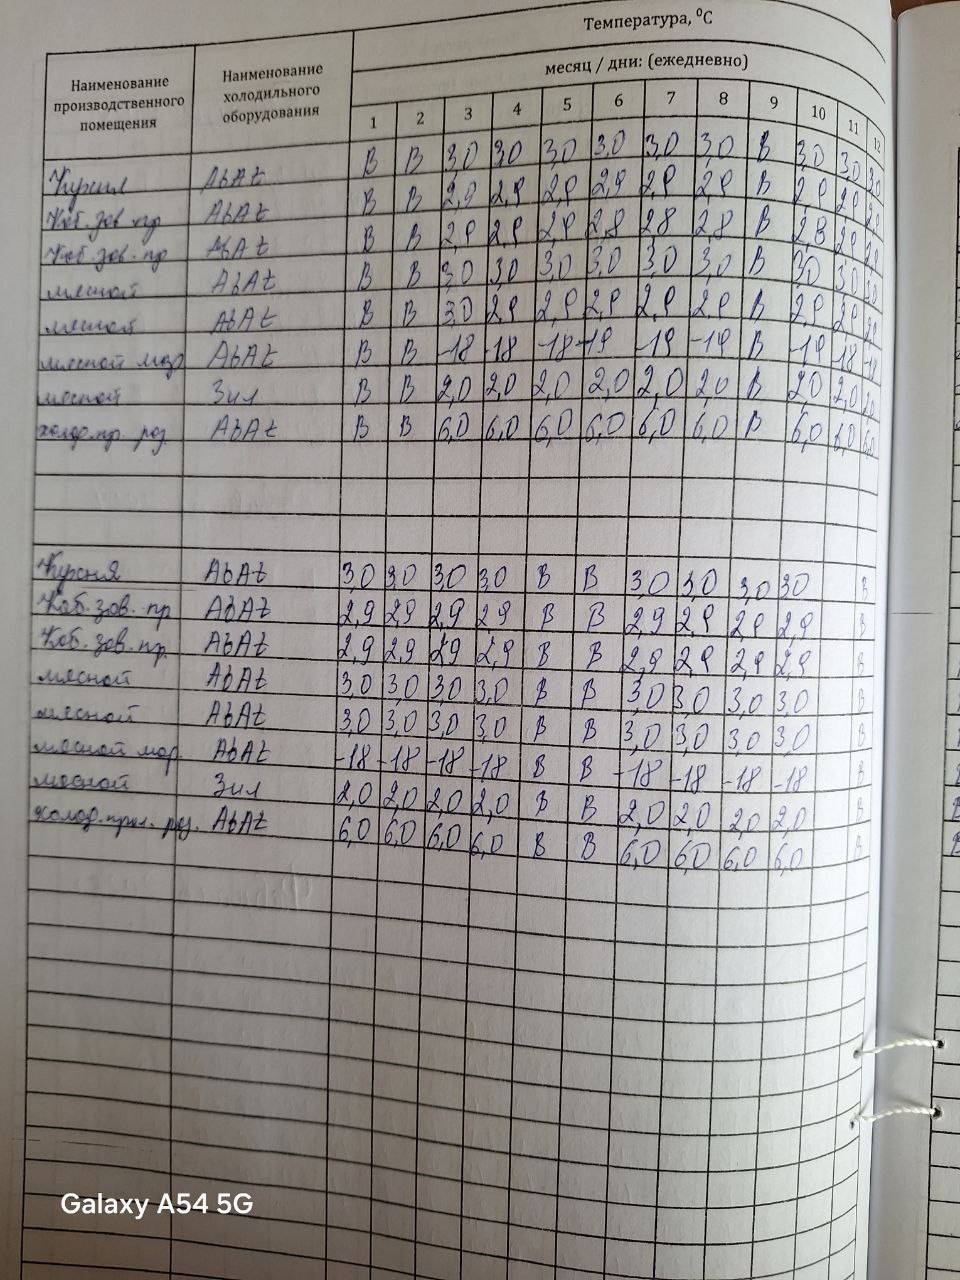 Температура, ⁰С
Наименование производственного помещения
Наименование холодильного оборудования
месяц / дни: (ежедневно)
1 2 3 4 5 6 7 8 9 10 11 12
Кухня AbAt В В 3,0 3,0 3,0 3,0 3,0 3,0 В 3,0 3,0 3,0
Каб. зав. пр AbAt В В 2,9 2,9 2,9 2,9 2,9 2,9 В 2,9 2,9 2,9
Каб. зав. пр AbAt В В 2,9 2,9 2,9 2,8 2,8 2,8 В 2,8 2,9 2,9
мясной AbAt В В 3,0 3,0 3,0 3,0 3,0 3,0 В 3,0 3,0 3,0
мясной AbAt В В 3,0 2,9 2,9 2,9 2,9 2,9 В 2,9 2,9 2,9
мясной мор AbAt В В -18 -18 -18 -19 -19 -19 В -19 -18 -18
мясной Зил В В 2,0 2,0 2,0 2,0 2,0 2,0 В 2,0 2,0 2,0
холод. пр. роз AbAt В В 6,0 6,0 6,0 6,0 6,0 6,0 В 6,0 6,0 6,0
Кухня AbAt 3,0 3,0 3,0 3,0 В В 3,0 3,0 3,0 3,0 В
Каб. зав. пр AbAt 2,9 2,9 2,9 2,9 В В 2,9 2,9 2,9 2,9 В
Каб. зав. пр. AbAt 2,9 2,9 2,9 2,9 В В 2,9 2,9 2,9 2,9 В
мясной AbAt 3,0 3,0 3,0 3,0 В В 3,0 3,0 3,0 3,0 В
мясной AbAt 3,0 3,0 3,0 3,0 В В 3,0 3,0 3,0 3,0 В
мясной мор. AbAt -18 -18 -18 -18 В В -18 -18 -18 -18 В
мясной Зил 2,0 2,0 2,0 2,0 В В 2,0 2,0 2,0 2,0 В
холод. роз. AbAt 6,0 6,0 6,0 6,0 В В 6,0 6,0 6,0 6,0 В
Galaxy A54 5G